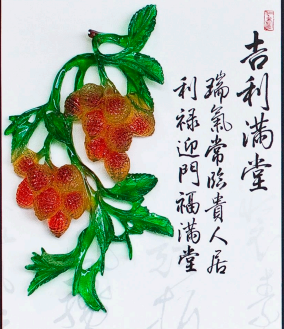 吉利滿堂
瑞氣常臨貴人居
利祿迎門福滿堂